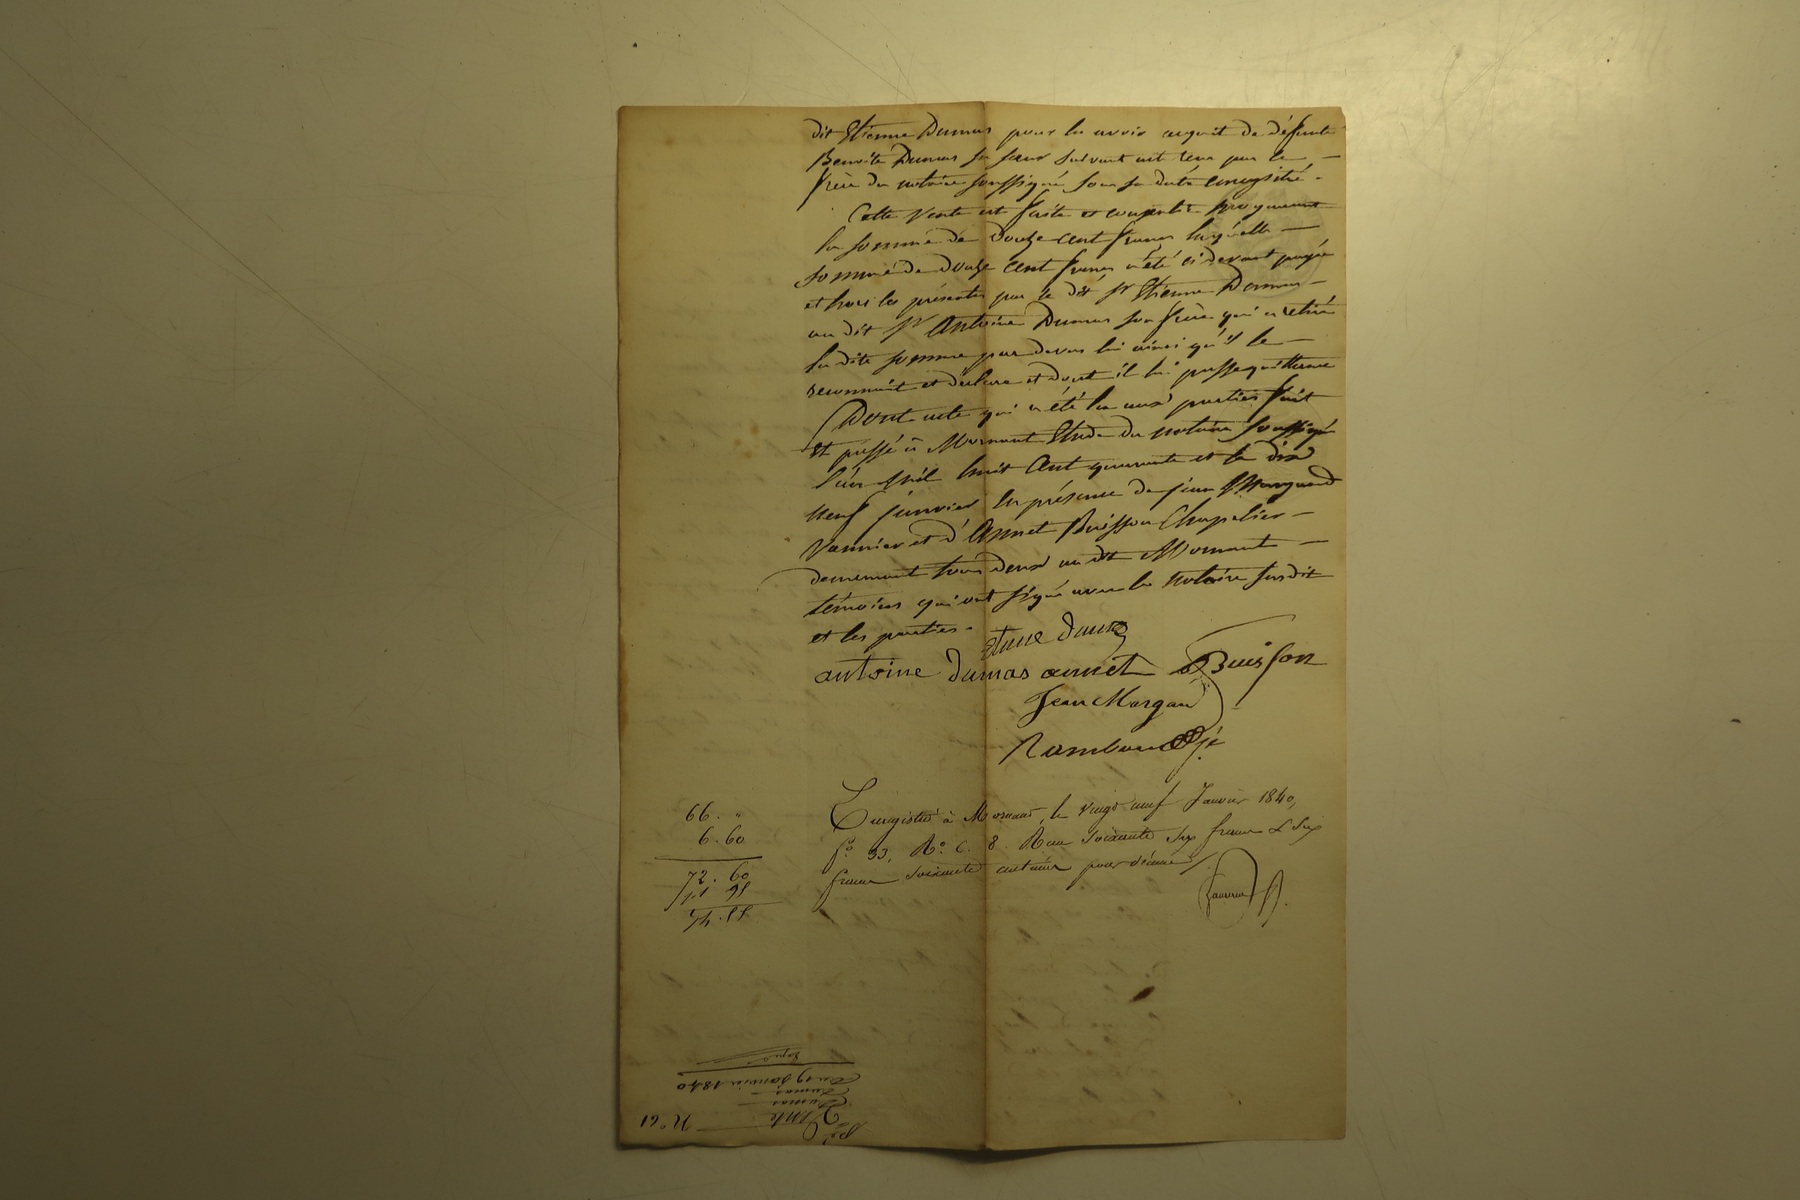 dit Etienne Dumas pour les avoir acquit de défunte
Benoîte Dumas sa sœur suivant acte reçu par le
frère du notaire soussigné sous sa date enregistré.
Cette vente est faite et consentie moyennant
la somme de douze cent francs laquelle
somme de douze cent francs a été ci devant payée
et hors les présentes par le dit Sr Etienne Dumas
au dit Sr Antoine Dumas son frère qui a retiré
la dite somme par devers lui ainsi qu'il le
reconnait et déclare et dont il lui passe quittance
Dont acte qui a été lu aux parties fait
et passé à Mornant Etude du notaire soussigné
l'an mil huit cent quarante et le dix
neuf janvier en présence de jean Morgand
Vannier et d'Annet Buisson Chapelier
demeurant tous deux au dit Mornant
témoins qui ont signé avec le notaire susdit
et les parties.
etiene dumas
antoine dumas annet Buisson
Jean Morgan
Enregistré à Mornant, le vingt neuf Janvier 1840,
fo. 93, Ro. C. 8. Reçu soixante six francs & six
francs soixante centimes pour décime
66. "
6.60
72.60
1.95
74.55
No 61
Vente
Dumas
Dumas
Du 19 Janvier 1840